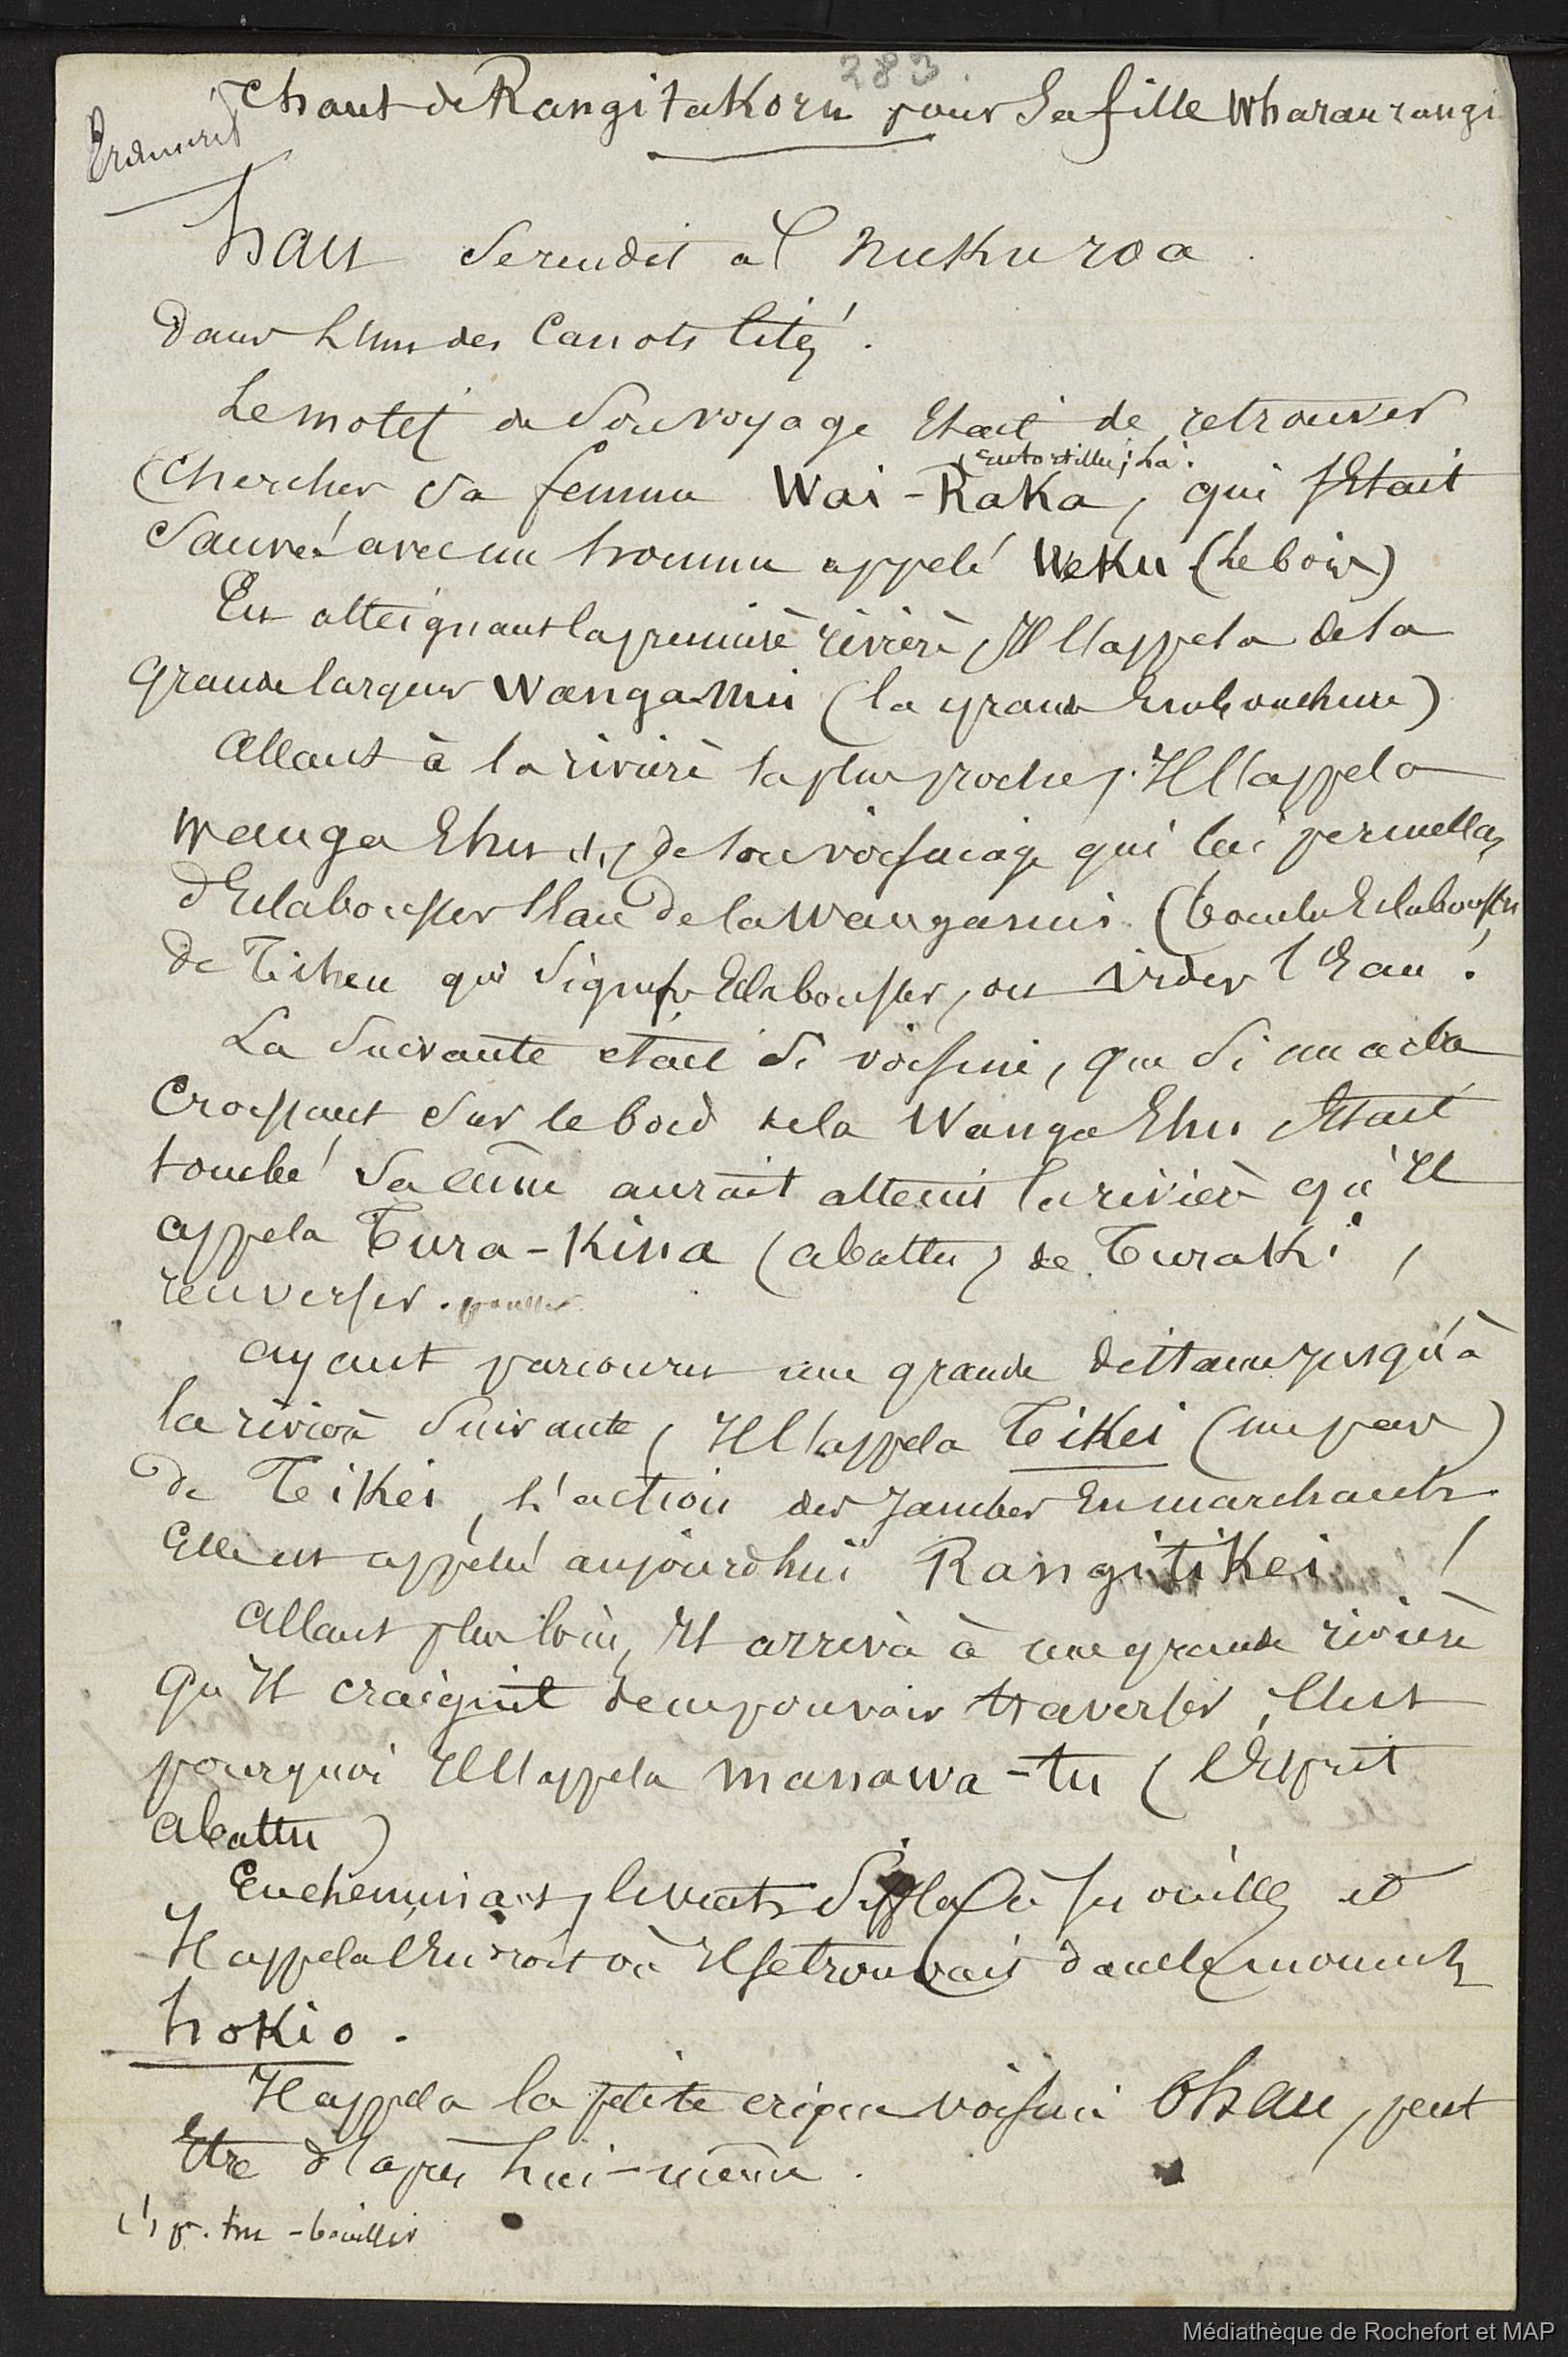 283
Chant de Rangitakoru pour sa fille Wharaurangi
hau se rendit a l'nukuroa.
dans l'un des Canots Cités.
Le motif de son voyage était de retrouver
(entortillée; ha.
(Chercher sa femme Wai-Raka, qui s'était
Sauvé avec un homme appelé Weku (Le bois)
En atteignant la première rivière, Il l'appela de sa
Grande largeur Wanga-nui (la grande Embouchure)
Allant à la rivière la plus proche, Il l'appela
Wanga Ehu (1) de son voisinage qui lui permettait
d'Eclabousser l'Eau de la Wanganui. (bouche Eclabousser
de Tiheu qui signifie Eclabousser, ou vider l'Eau!
La Suivante etait si voisine, que si un
Croissant sur le bord de la Wanga Ehu était
tombé sa cîme aurait atteint la rivière qu'Il
appela Tura-Kina (abattu) de Turaki,
renverser.
ayant parcouru une grande distance jusqu'à
la rivière Suivante, Il l'appela Tikei (un pas)
de Tikei, l'action des Jambes En marchant
Elle est appelé aujourd'hui Rangitikei!
Allant plus loin, Il arriva à une grande rivière
qu'Il craignit de ne pouvoir traverser, c'est
pourquoi Il l'appela manawa-tu (l'Esprit
abattu)
En cheminant, le vent siffla à ses oreilles et
Il appela l'Endroit où Il se trouvait dans le moment
hokio.
Il appela la petite crique voisine Ohau, peut
Etre d'après lui-même.
(1) p. hu - bouillir
Médiathèque de Rochefort et MAP